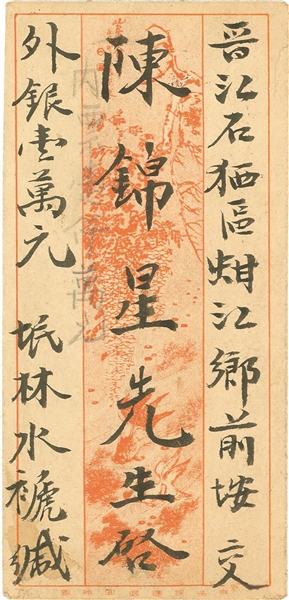 晋江石狮區蚶江鄉前垵 交
陳錦星先生啓
外銀壹萬元 垊林水褫緘